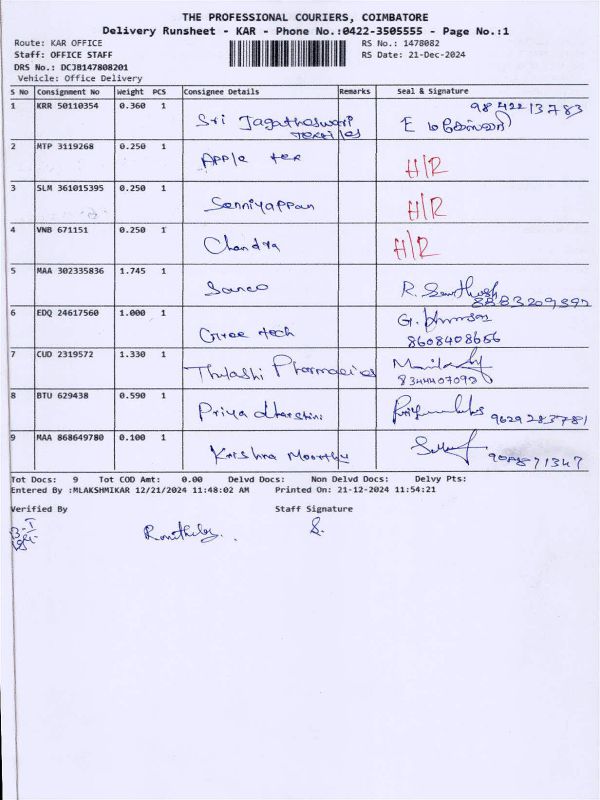 THE PROFESSIONAL COURIERS, COIMBATORE
Delivery Runsheet - KAR - Phone No.:0422-3505555 - Page No.:1
Route: KAR OFFICE RS No.: 1478082
Staff: OFFICE STAFF RS Date: 21-Dec-2024
DRS No.: DCJB147808201
Vehicle: Office Delivery
S No Consignment No Weight PCS Consignee Details Remarks Seal & Signature
1 KRR 50110354 0.360 1 Sri Jagatheswari Textiles 9842213783
E மகேஸ்வரி
2 MTP 3119268 0.250 1 Apple tex H/R
3 SLM 361015395 0.250 1 Senniyappan H/R
4 VNB 671151 0.250 1 Chandra H/R
5 MAA 302335836 1.745 1 Sanco R. Santhosh
6 EDQ 24617560 1.000 1 Gree tech
8608408656
7 CUD 2319572 1.330 1 Thulashi Pharmacies
8344407092
8 BTU 629438 0.590 1 Priya dharshini 9629283781
9 MAA 868649780 0.100 1 Krishna Moorthy
Tot Docs: 9 Tot COD Amt: 0.00 Delvd Docs: Non Delvd Docs: Delvy Pts:
Entered By :MLAKSHMIKAR 12/21/2024 11:48:02 AM Printed On: 21-12-2024 11:54:21
Verified By Staff Signature